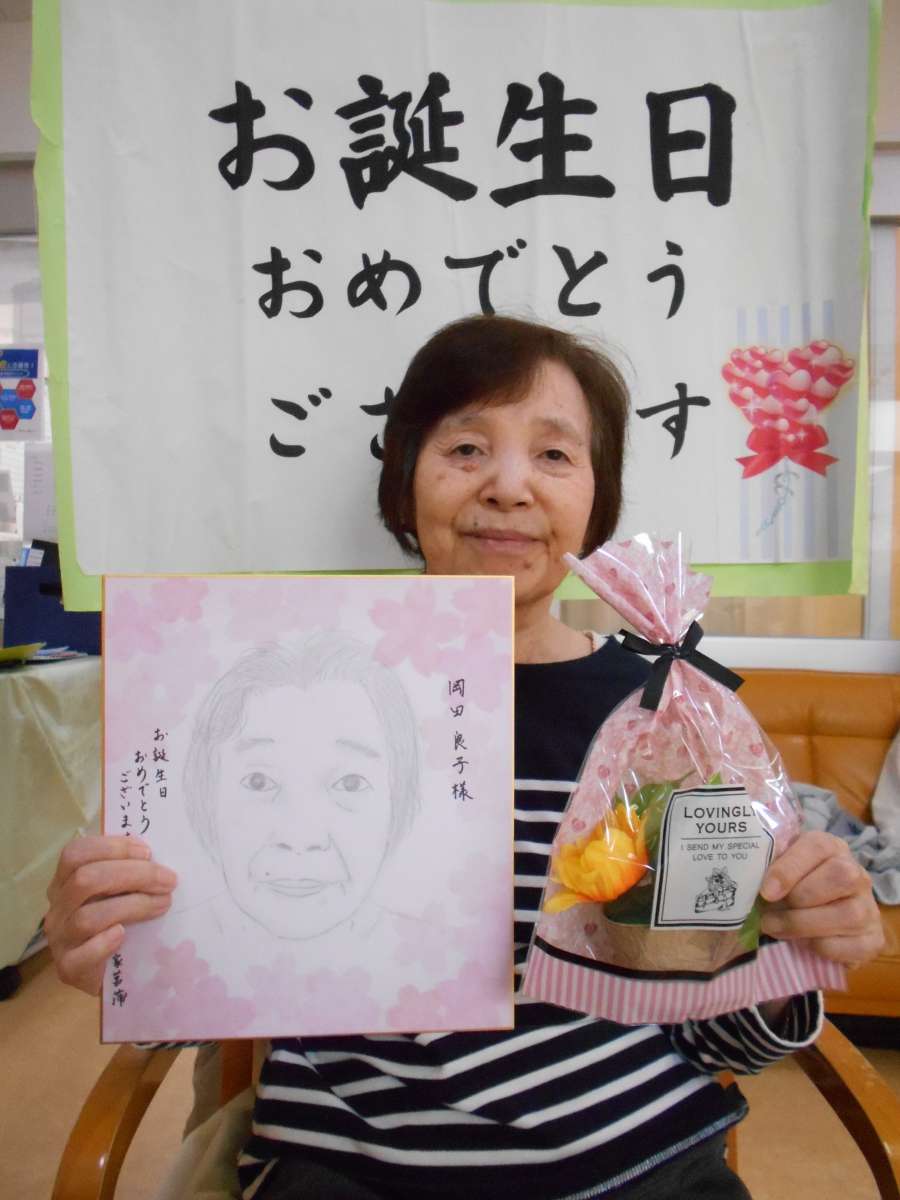 お誕生日
おめでとう
ござ す
岡田良子様
お誕生日
おめでとう
ございま
LOVINGLY
YOURS
I SEND MY SPECIAL
LOVE TO YOU